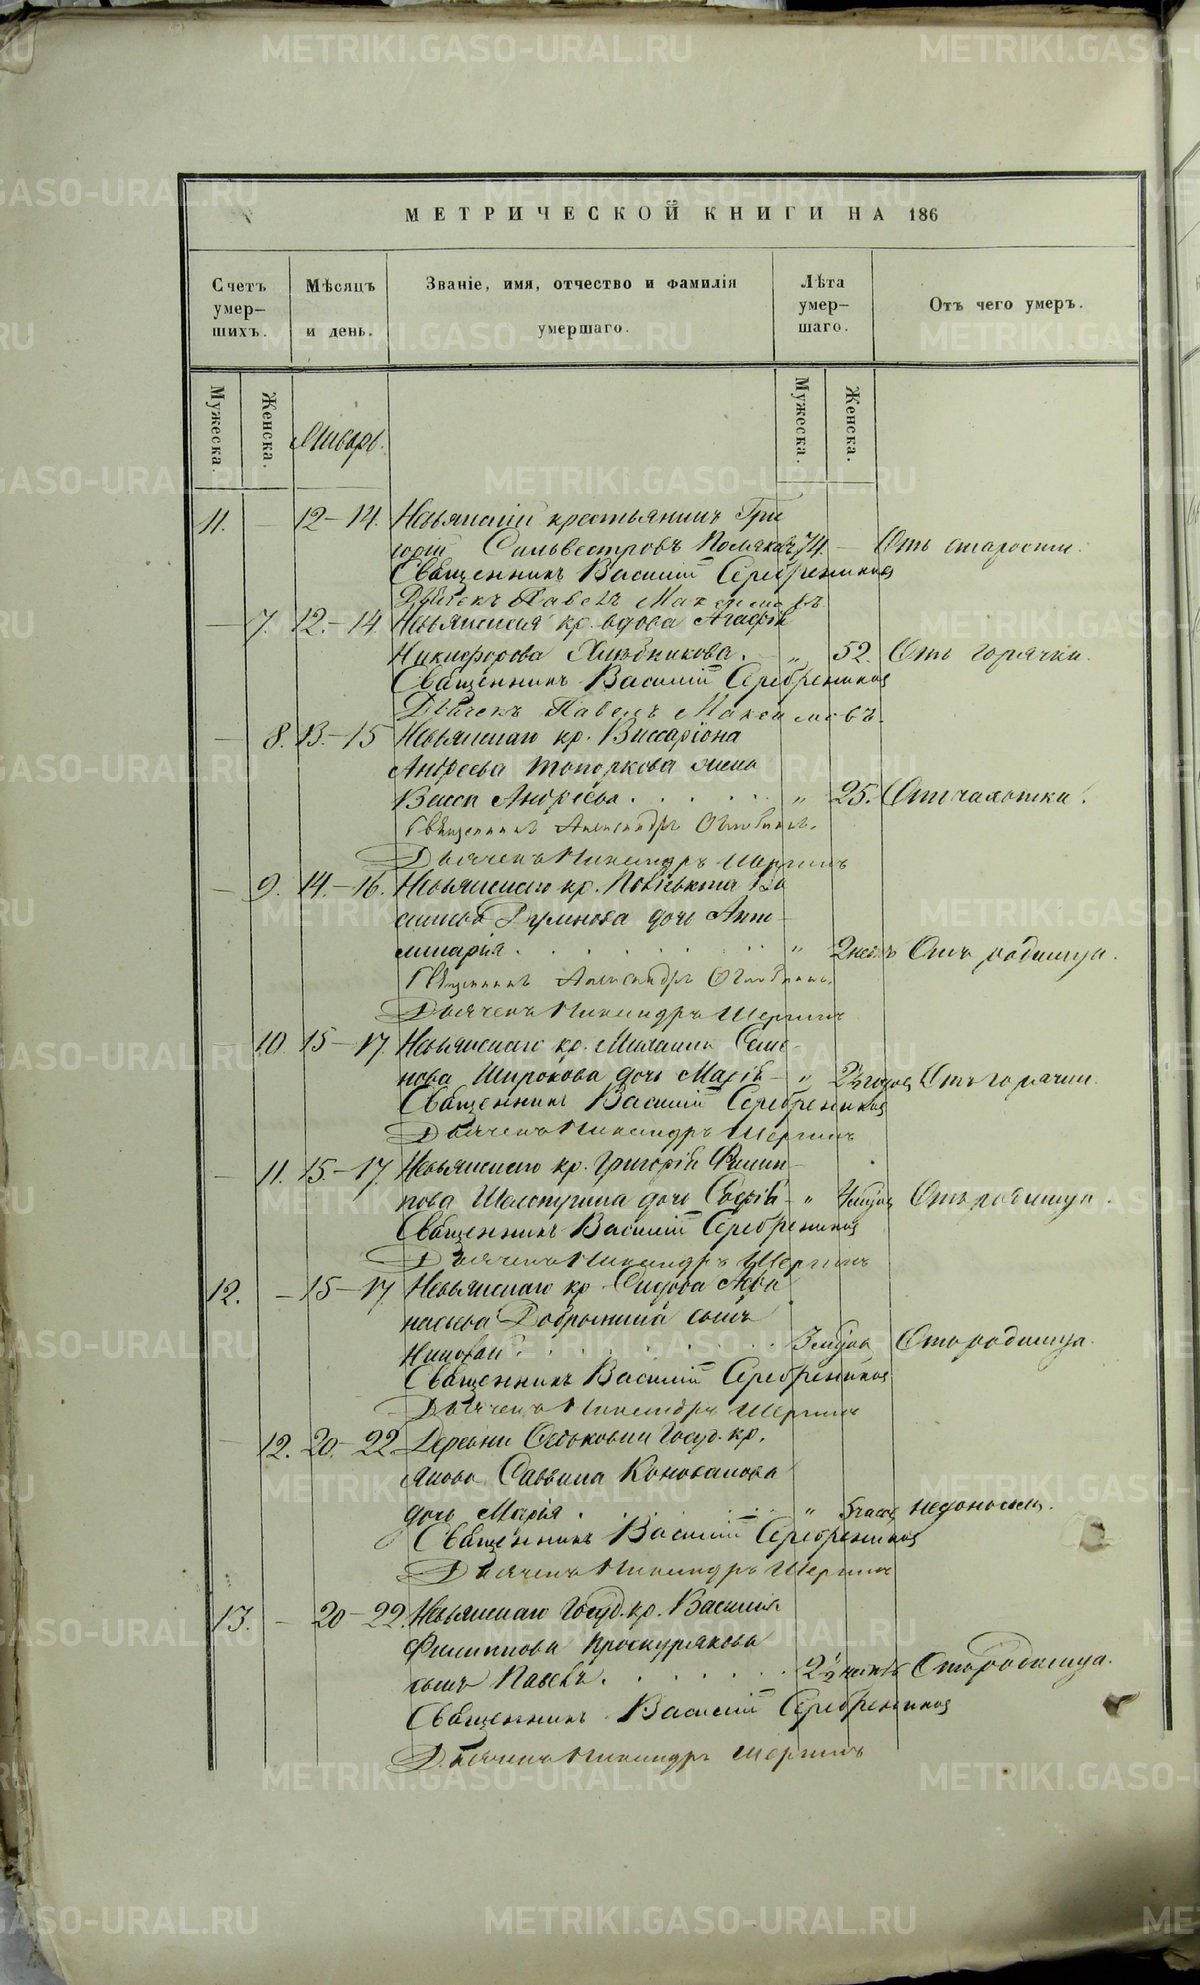 МЕТРИЧЕСКОЙ КНИГИ НА 186
Счетъ умер-шихъ.
Мѣсяцъ и день.
Званіе, имя, отчество и фамилія умершаго.
Лѣта умер-шаго.
Отъ чего умеръ.
Мужеска.
Женска.
Январь.
Мужеска.
Женска.
11. — 12-14. Невьянскій крестьянинъ Гри
горій Сильвестровъ Поляковъ 74. — Отъ старости.
Священникъ Василій Серебрениковъ
Дьячекъ Павелъ Максимовъ.
— 7. 12.-14. Невьянская кр. вдова Агафія
Никифорова Хлѣбникова. „ 52. Отъ горячки.
Священникъ Василій Серебрениковъ
Дьячекъ Павелъ Максимовъ.
— 8. 13.-15 Невьянскаго кр. Виссаріона
Андреева Топоркова жена
Васса Андреева. „ 25. Отъ чахотки.
Священникъ Александръ
Дьяченъ Никандръ Шергинъ
— 9. 14.-16. Невьянскаго кр. Ва
сильева дочь Апол-
линарія. „ 2 нед. Отъ родимца.
Священникъ Александръ
Дьяченъ Никандръ Шергинъ
— 10. 15-17. Невьянскаго кр. Михаила Семе-
нова Широкова дочь Марія — „ 2½ годов Отъ горячки.
Священникъ Василій Серебрениковъ
Дьяченъ Никандръ Шергинъ
— 11. 15.-17. Невьянскаго кр. Григорія Филип-
пова Шелспугина дочь Софія — „ Отъ родимца.
Священникъ Василій Серебрениковъ
Дьяченъ Никандръ Шергинъ
12. — 15-17. Невьянскаго кр. Сидора Афа
насьева Добрынина сынъ
3 Отъ родимца.
Священникъ Василій Серебрениковъ
Дьяченъ Никандръ Шергинъ
— 12. 20.-22. Деревни Госуд. кр.
Якова Саввина Коновалова
дочь Марія. „ недоносокъ.
Священникъ Василій Серебрениковъ
Дьяченъ Никандръ Шергинъ
13. — 20-22. Невьянскаго Госуд. кр. Василія
Филиппова Проскурякова
сынъ Павелъ. 2½ Отъ родимца.
Священникъ Василій Серебрениковъ
Дьяченъ Никандръ Шергинъ
METRIKI.GASO-URAL.RU